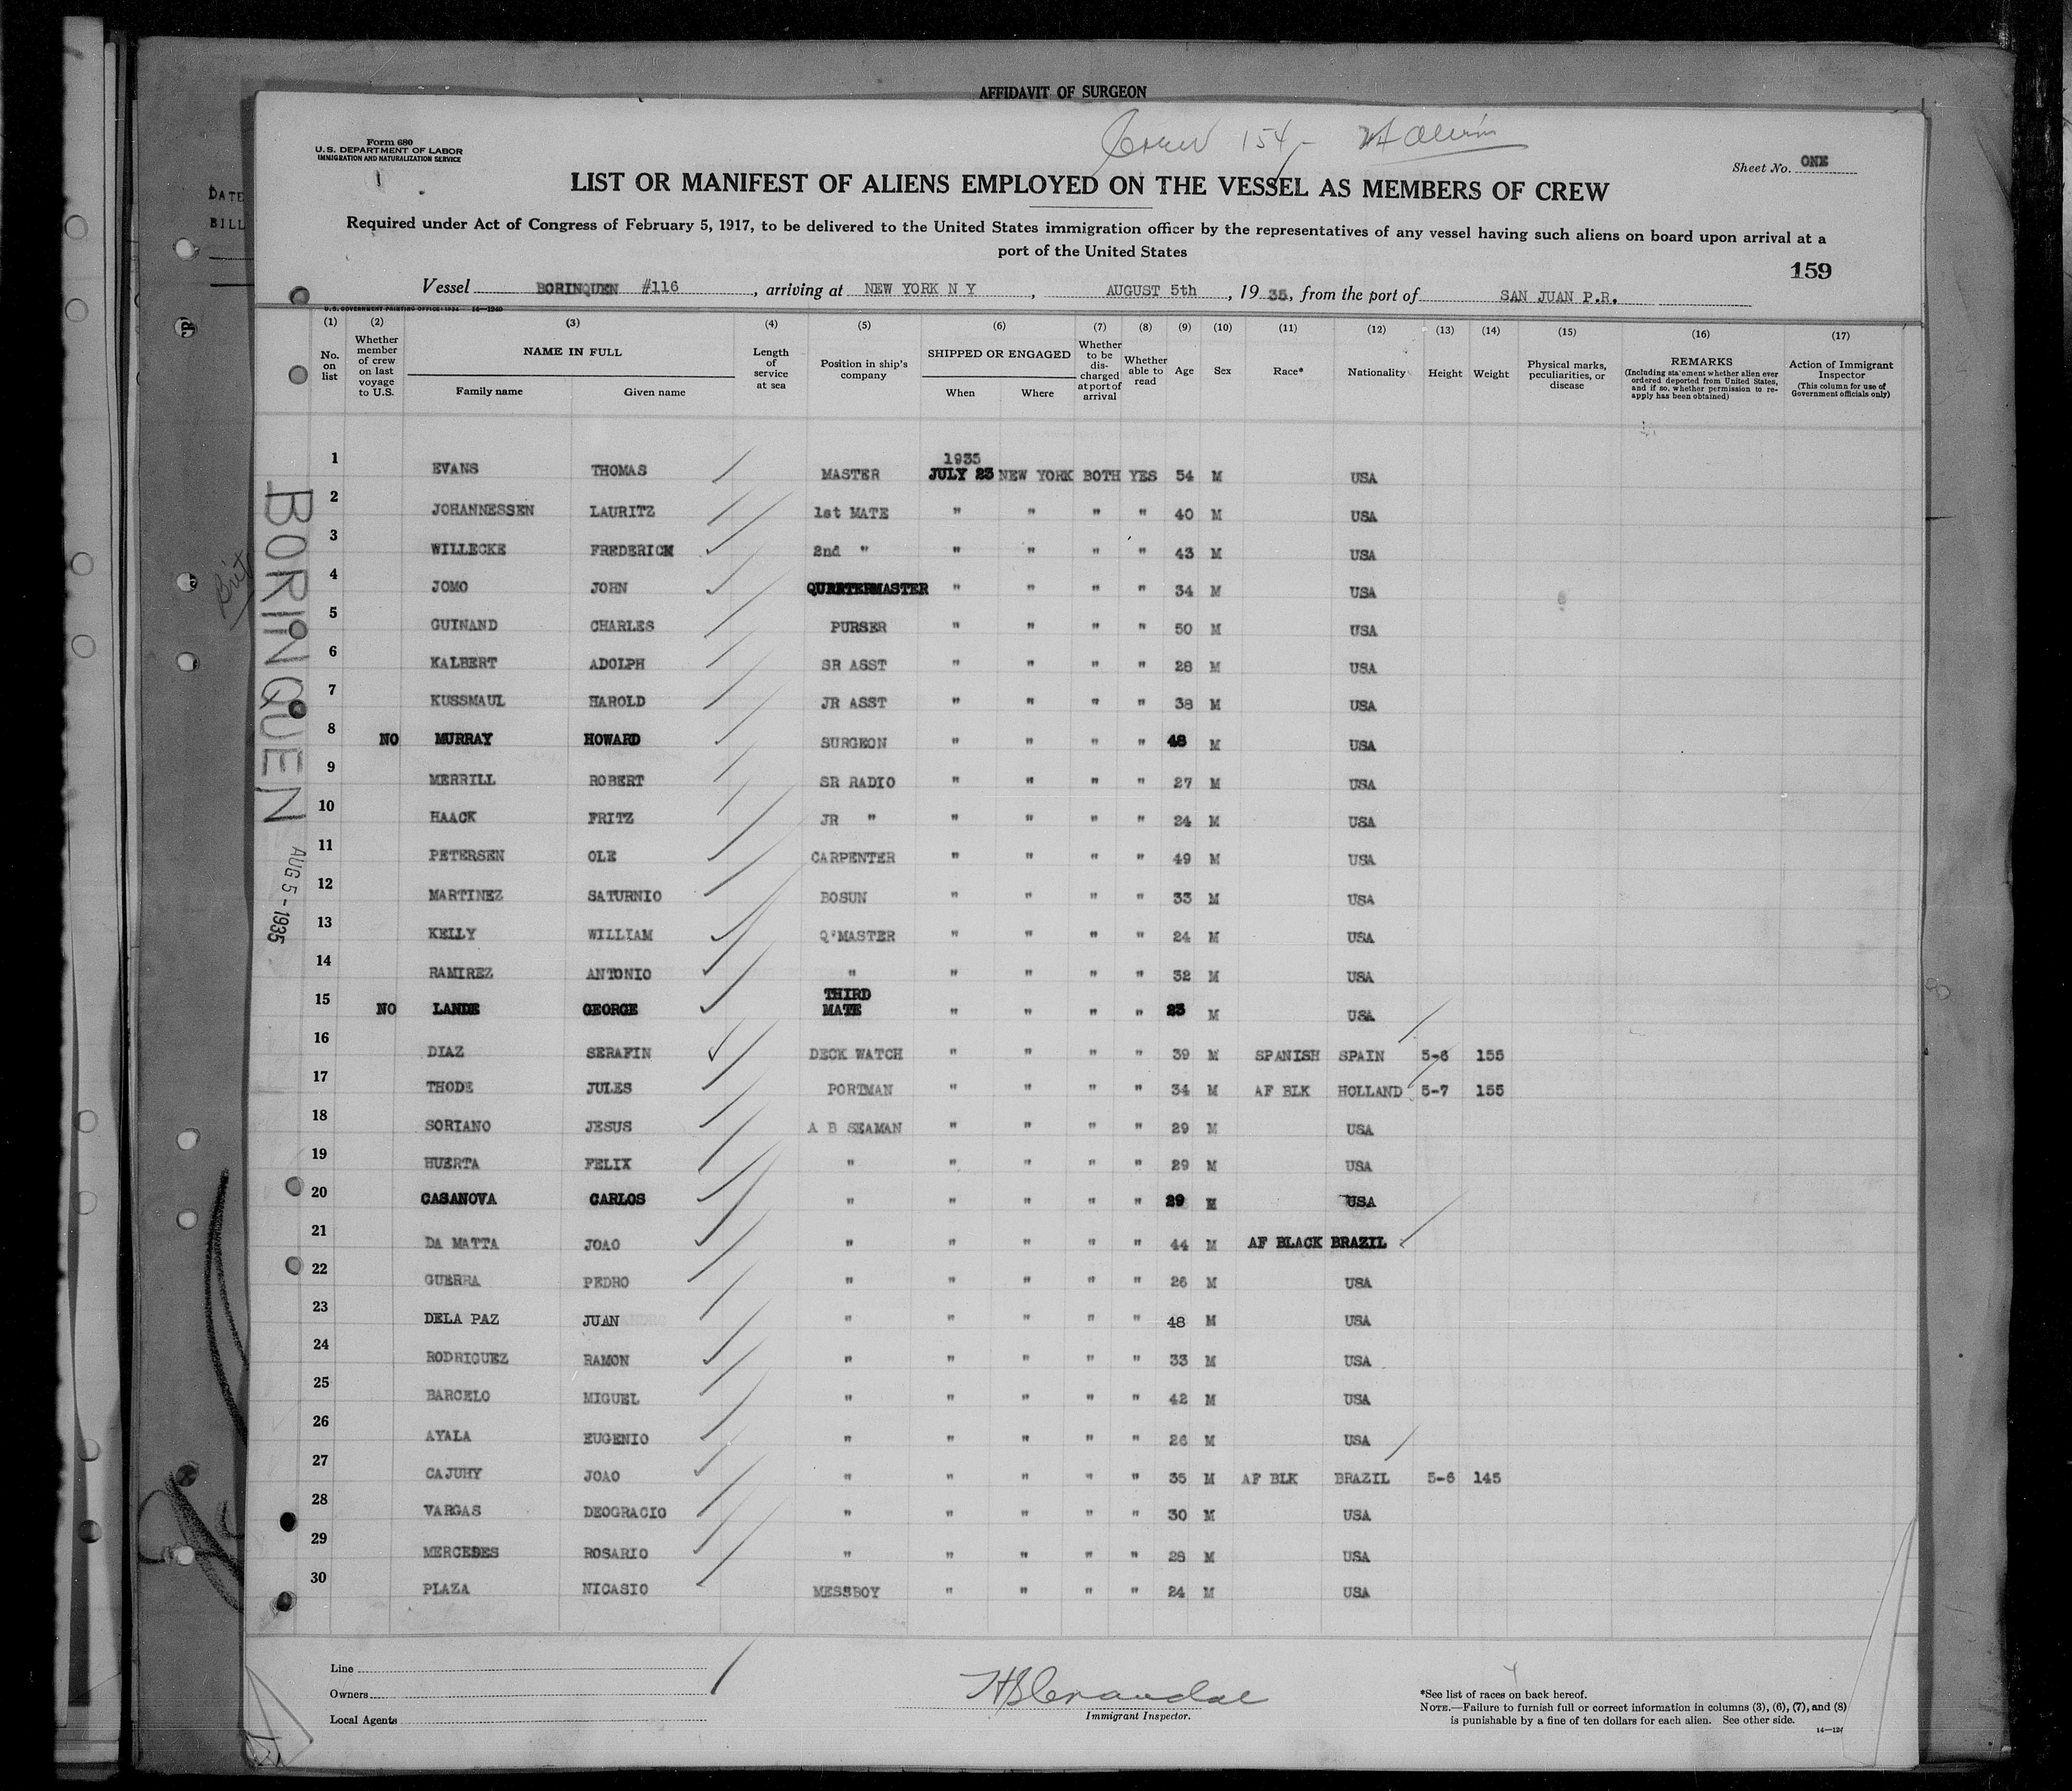 AFFIDAVIT OF SURGEON
DATE
BILL
Form 680
U. S. DEPARTMENT OF LABOR
IMMIGRATION AND NATURALIZATION SERVICE
Crew 154
Sheet No. ONE
LIST OR MANIFEST OF ALIENS EMPLOYED ON THE VESSEL AS MEMBERS OF CREW
Required under Act of Congress of February 5, 1917, to be delivered to the United States immigration officer by the representatives of any vessel having such aliens on board upon arrival at a
port of the United States
159
Vessel BORINQUEN #116, arriving at NEW YORK N Y, AUGUST 5th, 1935, from the port of SAN JUAN P.R.
U. S. GOVERNMENT PRINTING OFFICE: 1934
(1) (2) (3) (4) (5) (6) (7) (8) (9) (10) (11) (12) (13) (14) (15) (16) (17)
No. on list
Whether member of crew on last voyage to U.S.
NAME IN FULL
Family name Given name
Length of service at sea
Position in ship's company
SHIPPED OR ENGAGED
When Where
Whether to be discharged at port of arrival
Whether able to read
Age Sex Race* Nationality Height Weight
Physical marks, peculiarities, or disease
REMARKS
(Including statement whether alien ever ordered deported from United States, and if so, whether permission to reapply has been obtained)
Action of Immigrant Inspector
(This column for use of Government officials only)
1935
1 EVANS THOMAS MASTER JULY 23 NEW YORK BOTH YES 54 M USA
2 JOHANNESSEN LAURITZ 1st MATE " " " " 40 M USA
3 WILLECKE FREDERICK 2nd " " " " " 43 M USA
4 JOMO JOHN QUARTERMASTER " " " " 34 M USA
5 GUINAND CHARLES PURSER " " " " 50 M USA
6 KALBERT ADOLPH SR ASST " " " " 28 M USA
7 KUSSMAUL HAROLD JR ASST " " " " 38 M USA
8 NO MURRAY HOWARD SURGEON " " " " 48 M USA
9 MERRILL ROBERT SR RADIO " " " " 27 M USA
10 HAACK FRITZ JR " " " " " 24 M USA
11 PETERSEN OLE CARPENTER " " " " 49 M USA
12 MARTINEZ SATURNIO BOSUN " " " " 33 M USA
13 KELLY WILLIAM Q'MASTER " " " " 24 M USA
14 RAMIREZ ANTONIO " " " " " 32 M USA
15 NO LANDE GEORGE THIRD MATE " " " " 23 M USA
16 DIAZ SERAFIN DECK WATCH " " " " 39 M SPANISH SPAIN 5-6 155
17 THODE JULES PORTMAN " " " " 34 M AF BLK HOLLAND 5-7 155
18 SORIANO JESUS A B SEAMAN " " " " 29 M USA
19 HUERTA FELIX " " " " " 29 M USA
20 CASANOVA CARLOS " " " " " 29 M USA
21 DA MATTA JOAO " " " " " 44 M AF BLACK BRAZIL
22 GUERRA PEDRO " " " " " 26 M USA
23 DELA PAZ JUAN " " " " " 48 M USA
24 RODRIGUEZ RAMON " " " " " 33 M USA
25 BARCELO MIGUEL " " " " " 42 M USA
26 AYALA EUGENIO " " " " " 26 M USA
27 CAJUHY JOAO " " " " " 35 M AF BLK BRAZIL 5-6 145
28 VARGAS DEOGRACIO " " " " " 30 M USA
29 MERCEDES ROSARIO " " " " " 28 M USA
30 PLAZA NICASIO MESSBOY " " " " 24 M USA
BORINQUEN
AUG 5 - 1935
Line
Owners
Local Agents
Immigrant Inspector.
*See list of races on back hereof.
NOTE.—Failure to furnish full or correct information in columns (3), (6), (7), and (8)
is punishable by a fine of ten dollars for each alien. See other side.